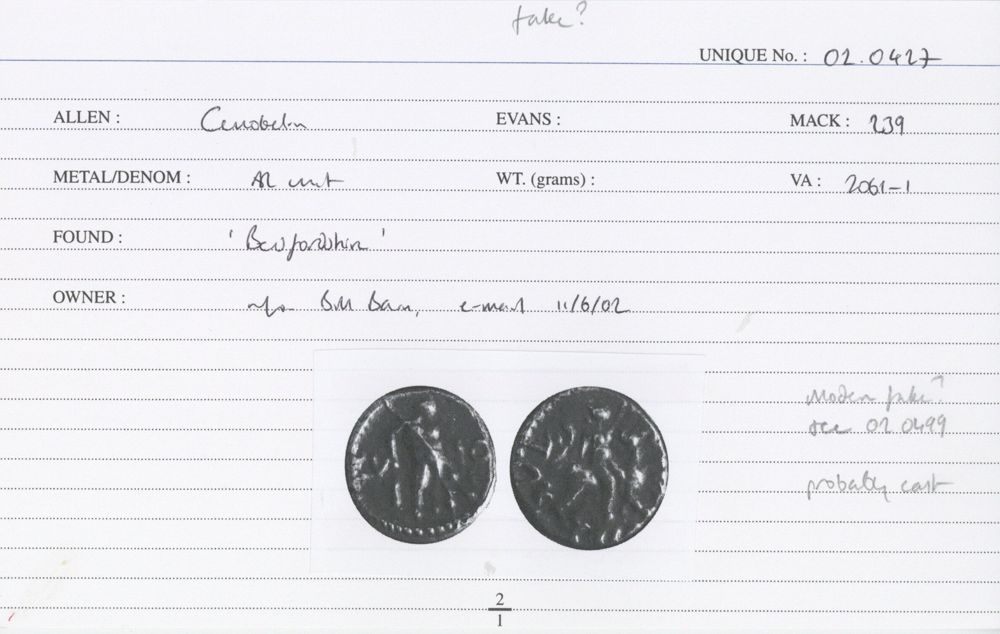 fake?
UNIQUE No. : 02.0427
ALLEN : Cunobelin EVANS : MACK : 239
METAL/DENOM : AR unit WT. (grams) : VA : 2061-1
FOUND : 'Bedfordshire'
OWNER : e-mail 11/6/02
Modern fake?
see 02.0499
probably cast
2
1